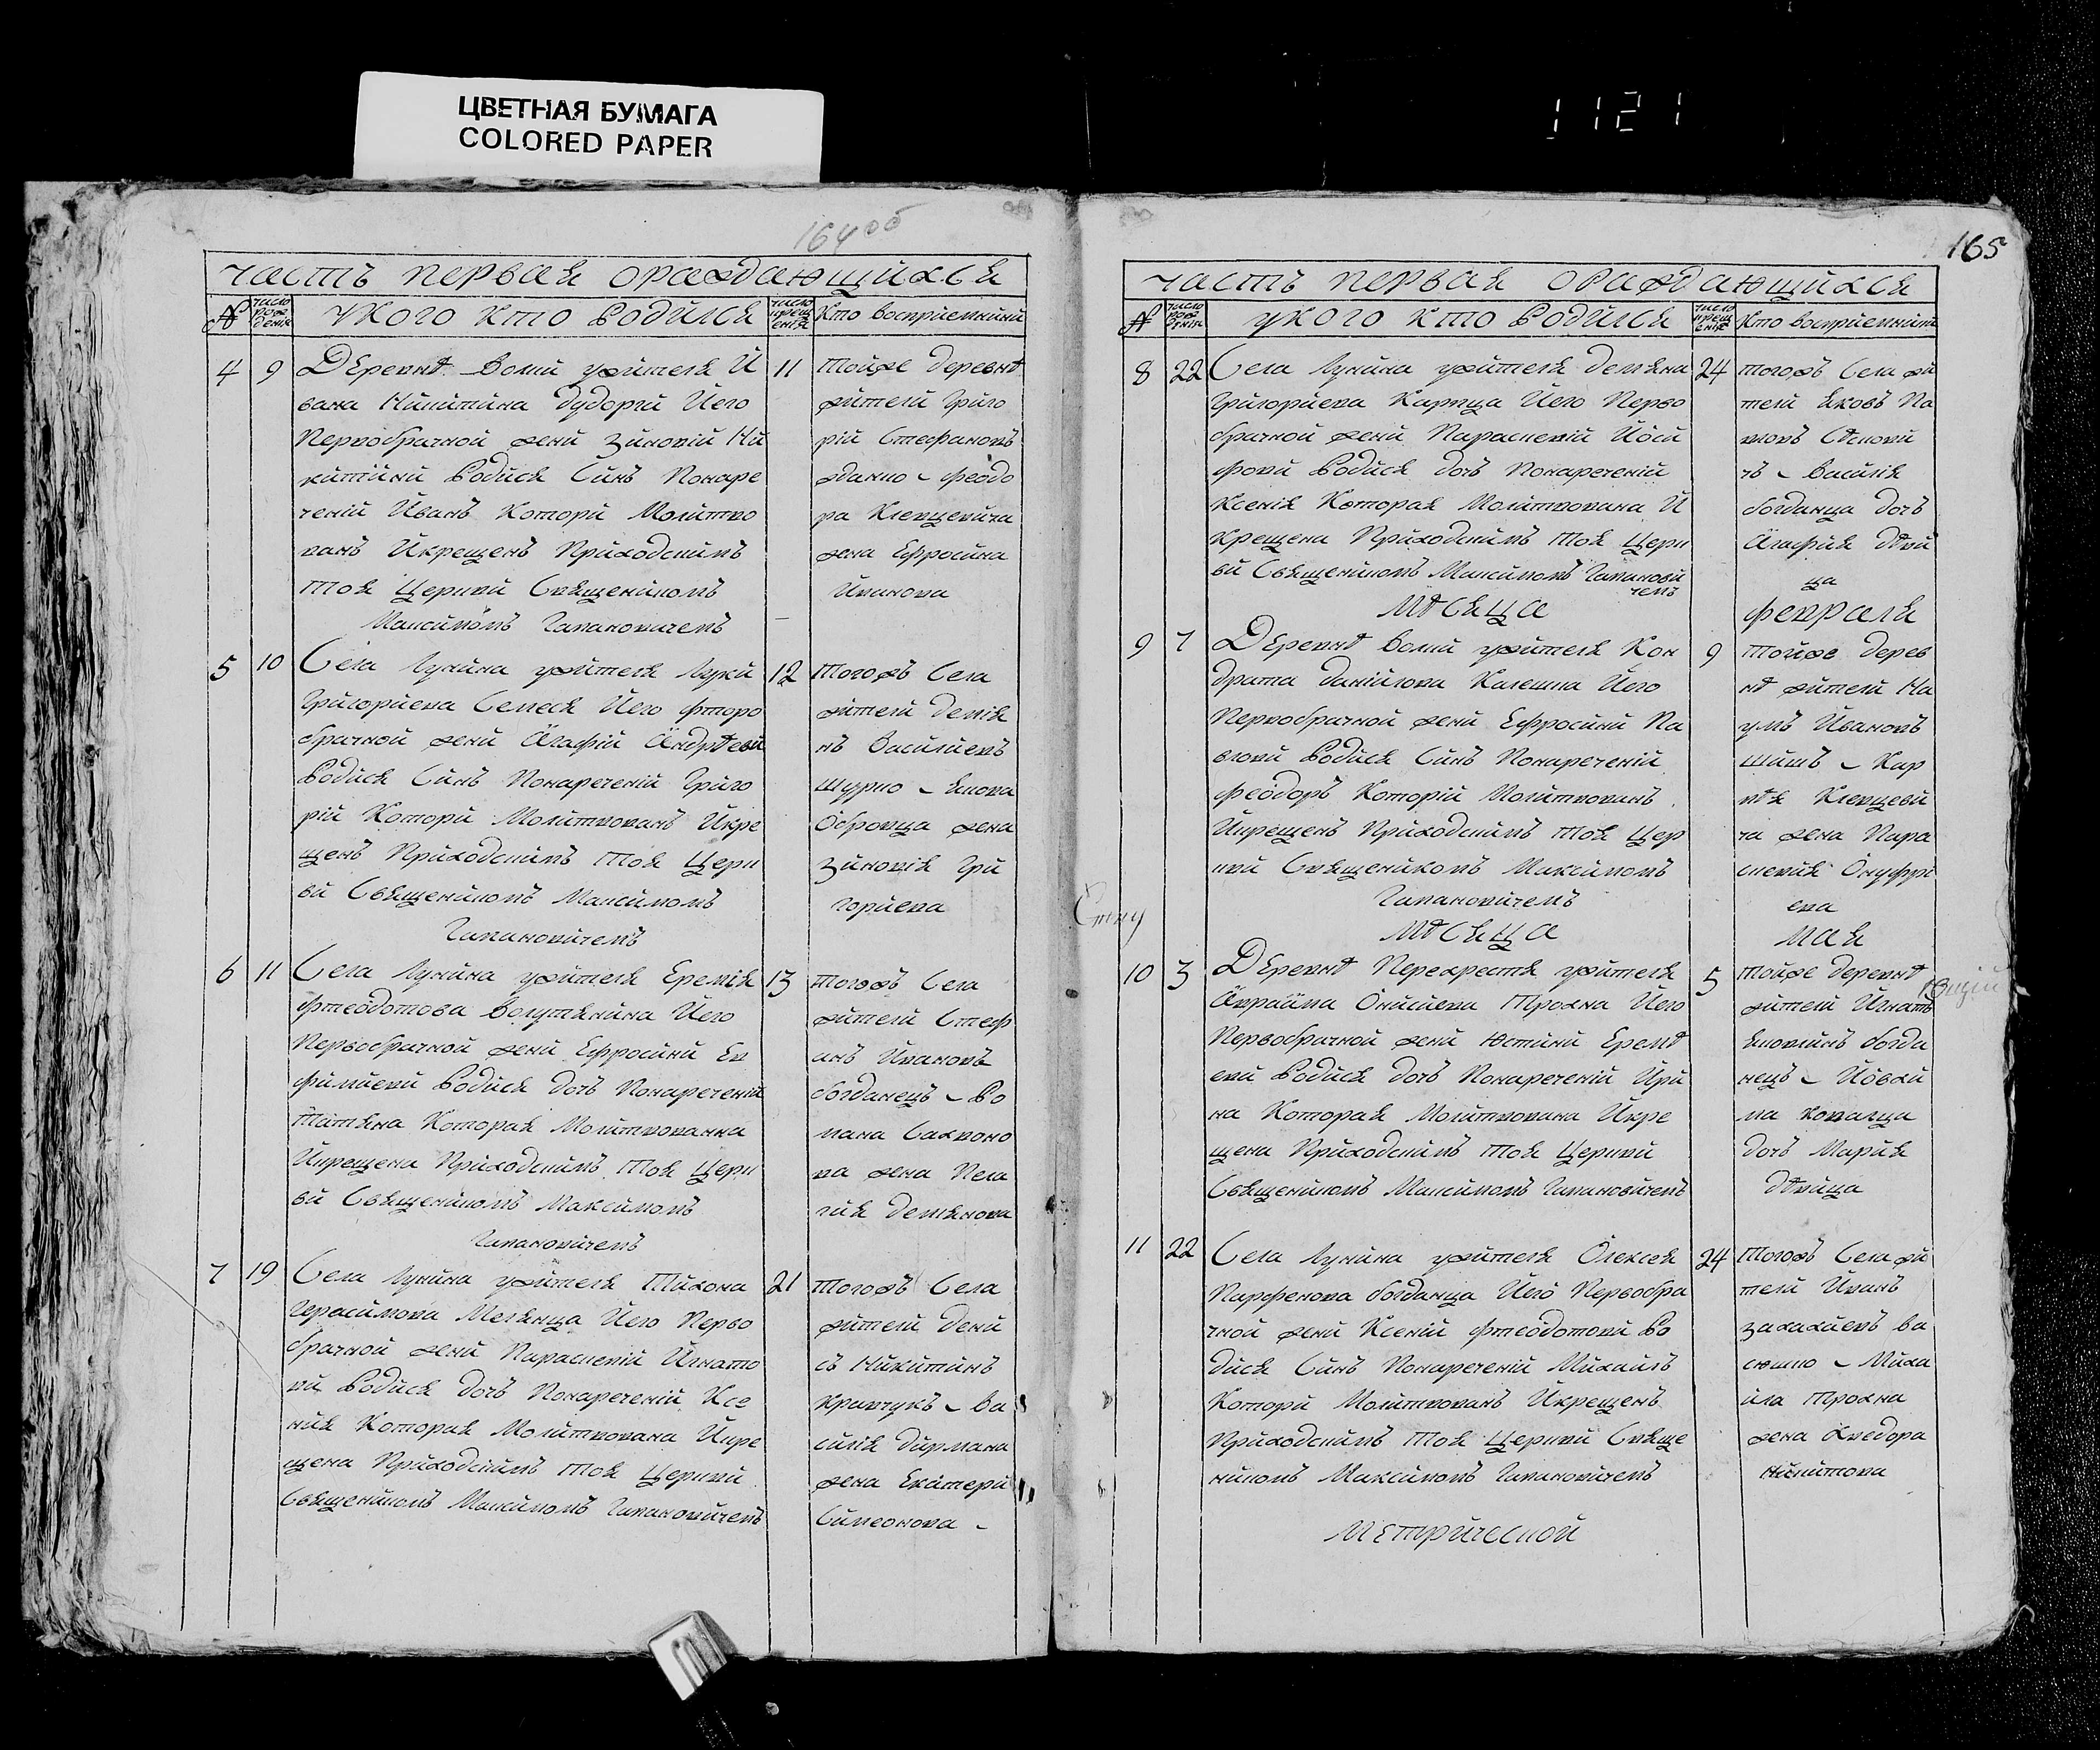 ЦВЕТНАЯ БУМАГА
COLORED PAPER
1121
164об
часть первая ораждающихся
№
число рож денія
укого кто родился
число крещ енія
кто восприемники
4 9 Деревнѣ Волki ужителя И
вана Никитина Дудорги Його
Первобрачной жени Зиновий Ни
китини Родися Синъ Понаре
чений Иванъ Котори Молитво
ванъ Икрещенъ Приходскимъ
Тоя Церкви Священикомъ
Максимомъ Гапановичемъ
11 Тойже деревнѣ
житель Григо
рій Стефановъ
Жданко - Феодо
ра Клевцевича
жена Ефросина
Иванова
5 10 Села Лунина ужителя Луки
Григориева Селеся Його фторо
брачной жени Агафий Андрѣеви
Родися Синъ Понаречений Григо
рій Котори Молитвованъ Икре
щенъ Приходскимъ Тоя Церк
ви Священикомъ Максимомъ
Гапановичемъ
12 Тогожъ Села
житель Демія
нъ Василиевъ
Шурко - Якова
Обровца жена
Зиновія Гри
гориева
6 11 Села Лунина ужителя Еремія
Фтеодотова Волутянина Його
Первобрачной жени Ефросини Ев
фимиеви Родися Дочъ Понаречений
Татяна Которая Молитвованна
Икрещена Приходскимъ Тоя Церк
ви Священикомъ Максимомъ
Гапановичемъ
13 Тогожъ Села
житель Стеф
анъ Ивановъ
Богданецъ - Ро
мана Сахвоно
ва жена Пела
гия Демянова
7 19 Села Лунина ужителя Тихона
Герасимова Мелянца Його Перво
брачной жени Параскевий Игнато
ви Родися Дочъ Понаречений Ксе
ния Которая Молитвована Икре
щена Приходскимъ Тоя Церкви
Священикомъ Максимомъ Гапановичемъ
21 Тогожъ Села
житель Дени
съ Никитинъ
Кравчукъ - Ва
силія Дирмана
жена Екатери
Симеонова -
165
часть первая ораждающихся
№
число рож денія
укого кто родился
число крещ енія
кто восприемники
8 22 Села Лунина ужителя Демяна
Григориева Карпца Його Перво
брачной жени Параскевий Йоси
фови Родися Дочъ Понаречений
Ксения Которая Молитвована И
крещена Приходскимъ Тоя Церк
ви Священикомъ Максимомъ Гапанови
чемъ
24 Тогожъ Села жи
тель Яковъ Па
вловъ Сѣнкови
чъ - Василія
Богданца Дочъ
Агафия Дѣви
ца
Мѣсяца Февраля
9 7 Деревнѣ Волki ужителя Кон
драта Данийлова Калешка Його
Первобрачной жени Ефросини Па
влови Родися Синъ Понаречений
Феодоръ Которій Молитвованъ
Икрещенъ Приходскимъ Тоя Цер
кви Священикомъ Максимомъ
Гапановичемъ
9 Тойже Дерев
нѣ житель На
умъ Ивановъ
Шишъ - Кар
пѣя Клевцеви
ча жена Пара
скевия Онуфри
ева
Мѣсяца Мая
10 3 Деревнѣ Перехрестя ужителя
Авраама Онисиева Трохна Його
Первобрачной жени Юстини Еремѣ
еви Родися Дочъ Понаречений Ири
на Которая Молитвована Икре
щена Приходскимъ Тоя Церкви
Священикомъ Максимомъ Гапановичемъ
5 Тойже деревнѣ
житель Игнатъ
Яковлинъ Богда
нецъ - Йоваки
ма Ковалца
Дочъ Мария
Дѣвица
11 22 Села Лунина ужителя Олексея
Парфенова Богданца Його Первобра
чной жени Ксений Фтеодотови Ро
дися Синъ Понаречений Михаилъ
Котори Молитвованъ Икрещенъ
Приходскимъ Тоя Церкви Свяще
никомъ Максимомъ Гапановичемъ
24 Тогожъ Села жи
тель Иванъ
Захахиевъ Ва
сюшко - Миха
ила Трохна
жена Хведора
Никитова
Метрической